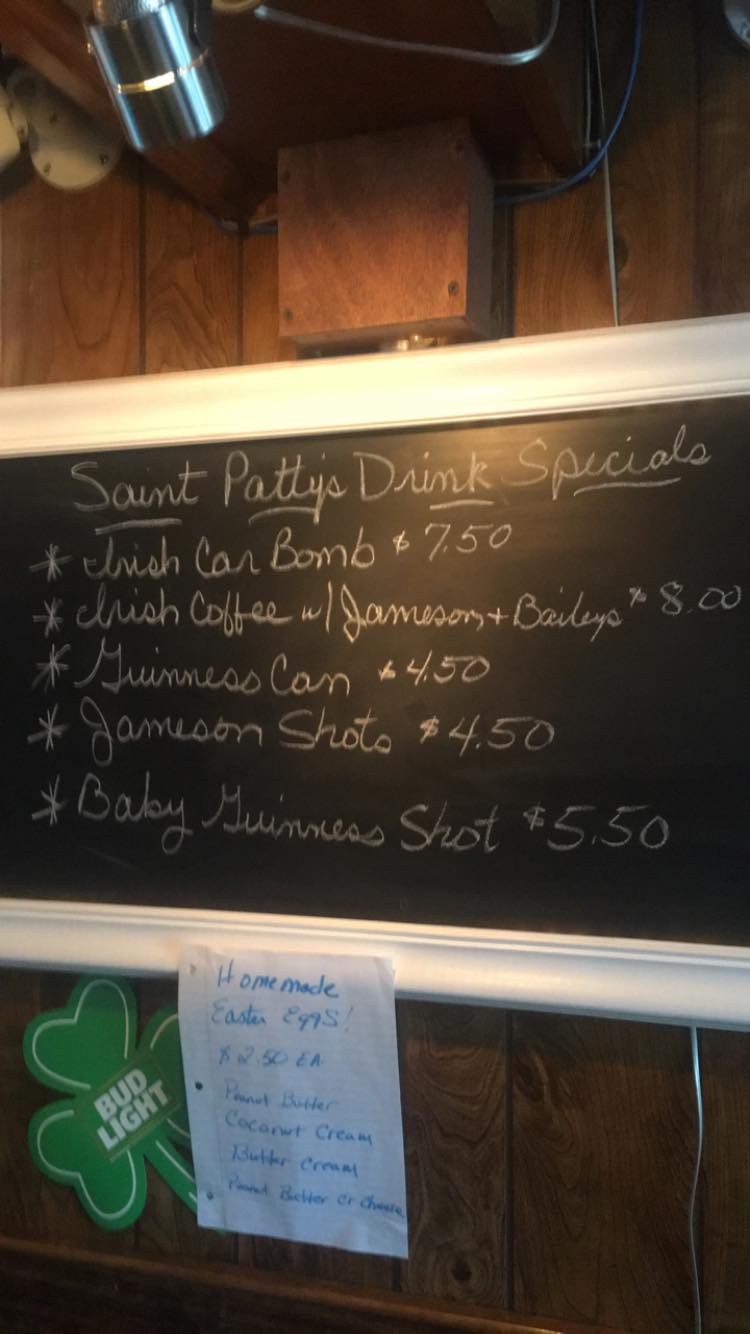 Saint Patty's Drink Specials
* Irish Car Bomb $7.50
* Irish Coffee w/ Jameson + Baileys $8.00
* Guinness Can $4.50
* Jameson Shots $4.50
* Baby Guinness Shot $5.50
Homemade
Easter Eggs!
$2.50 EA
Peanut Butter
Coconut Cream
Butter Cream
Peanut Butter Cr Cheese
BUD
LIGHT